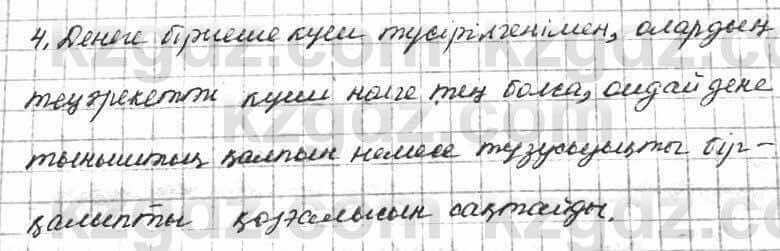 4. Денеге бірнеше күш түсірілгенімен, олардың
теңәрекетті күші нөлге тең болса, ондай дене
тыныштық қалпын немесе түзусызықты бір-
қалыпты қозғалысын сақтайды.